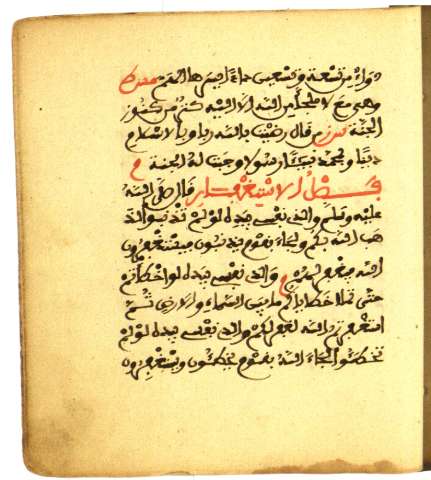 دواء من تسعة وتسعين داء ايسرها الهم
وهي مع لا ملجأ من الله الا اليه كنز من كنوز
الجنة من قال رضيت بالله ربا وبالاسلام
دينا وبمحمد نبيئا رسولا وجبت له الجنة
فضل الاستغفار قال صلى الله
عليه وسلم والذي نفسي بيده لو لم تذنبوا لذ
هب الله بكم ولجاء بقوم يذنبون فيستغفرون
الله فيغفر لهم والذي نفسي بيده لو اخطأتم
حتى تملأ خطاياكم ما بين السماء والارض ثم
استغفرتم الله لغفر لكم والذي نفسي بيده لو لم
تخطئوا لجاء الله بقوم يخطئون ويستغفرون